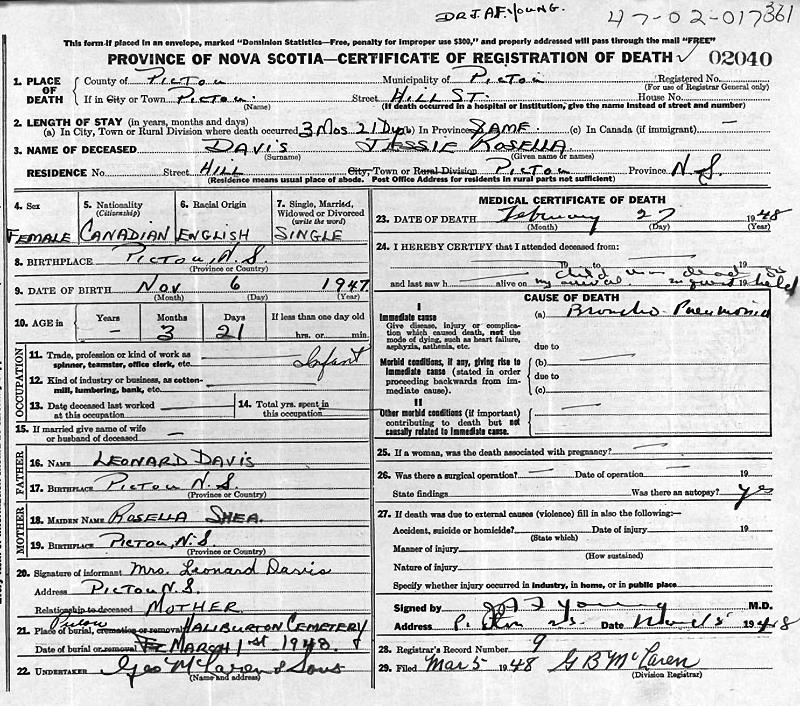 DR J. A. F. YOUNG. 47-02-017361
This form if placed in an envelope, marked "Dominion Statistics—Free, penalty for improper use $300," and properly addressed will pass through the mail "FREE"
PROVINCE OF NOVA SCOTIA—CERTIFICATE OF REGISTRATION OF DEATH ✓ 02040
1. PLACE OF DEATH
County of Pictou Municipality of Pictou Registered No.
(For use of Registrar General only)
If in City or Town Pictou. Street HILL ST. House No.
(Name) (If death occurred in a hospital or institution, give the name instead of street and number)
2. LENGTH OF STAY (in years, months and days)
(a) In City, Town or Rural Division where death occurred 3 Mos 21 Dys (b) In Province SAME. (c) In Canada (if immigrant) —
3. NAME OF DECEASED DAVIS JESSIE ROSELLA
(Surname) (Given name or names)
RESIDENCE No. Street HILL City, Town or Rural Division PICTOU Province N.S.
(Residence means usual place of abode. Post Office Address for residents in rural parts not sufficient)
4. Sex 5. Nationality (Citizenship) 6. Racial Origin 7. Single, Married, Widowed or Divorced (write the word)
FEMALE CANADIAN ENGLISH SINGLE
8. BIRTHPLACE PICTOU, N.S.
(Province or Country)
9. DATE OF BIRTH Nov 6 1947
(Month) (Day) (Year)
10. AGE in Years Months Days If less than one day old
— 3 21 hrs. or min.
OCCUPATION
11. Trade, profession or kind of work as spinner, teamster, office clerk, etc. Infant
12. Kind of industry or business, as cotton-mill, lumbering, bank, etc.
13. Date deceased last worked at this occupation 14. Total yrs. spent in this occupation
15. If married give name of wife or husband of deceased —
FATHER
16. NAME LEONARD DAVIS
17. BIRTHPLACE PICTOU N.S.
(Province or Country)
MOTHER
18. MAIDEN NAME ROSELLA SHEA.
19. BIRTHPLACE PICTOU, N.S
(Province or Country)
20. Signature of informant Mrs. Leonard Davis
Address PICTOU N.S.
Relationship to deceased MOTHER.
21. Place of burial, cremation or removal Pictou HALIBURTON CEMETERY
Date of burial or removal MARCH 1st 1948.
22. UNDERTAKER Geo McLaren & Sons
(Name and address)
MEDICAL CERTIFICATE OF DEATH
23. DATE OF DEATH February 27 1948
(Month) (Day) (Year)
24. I HEREBY CERTIFY that I attended deceased from:
19 to 19
and last saw h alive on 19
child was dead on my arrival. held
CAUSE OF DEATH
I
Immediate cause (a) Broncho-Pneumonia
Give disease, injury or complication which caused death, not the mode of dying, such as heart failure, asphyxia, asthenia, etc.
due to
Morbid conditions, if any, giving rise to immediate cause (stated in order proceeding backwards from immediate cause).
(b)
due to
(c)
II
Other morbid conditions (if important) contributing to death but not causally related to immediate cause.
25. If a woman, was the death associated with pregnancy? —
26. Was there a surgical operation? — Date of operation — 19
State findings Was there an autopsy? yes
27. If death was due to external causes (violence) fill in also the following:—
Accident, suicide or homicide? Date of injury 19
(State which)
Manner of injury
(How sustained)
Nature of injury
Specify whether injury occurred in industry, in home, or in public place
Signed by J A F Young M.D.
Address Date March 5 1948
28. Registrar's Record Number 9
29. Filed Mar 5 1948 G B McLaren
(Division Registrar)